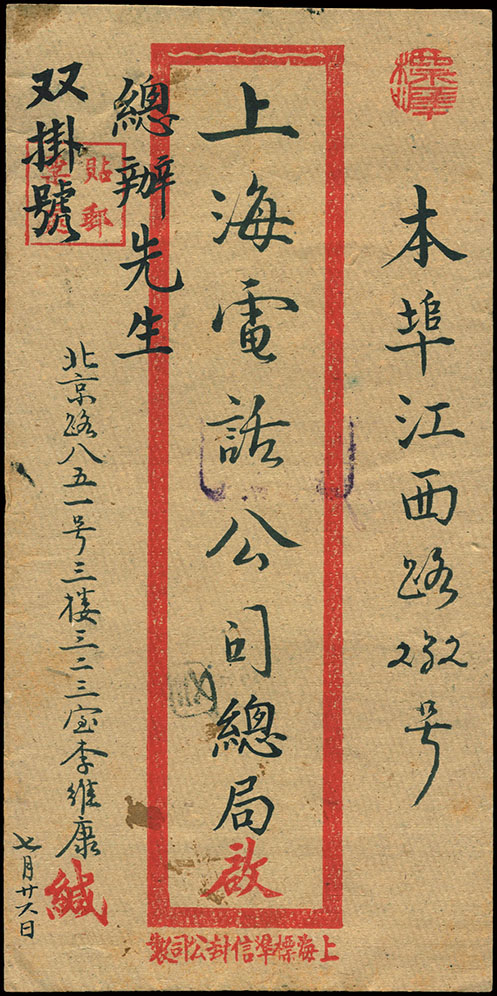 標準
本埠江西路232号
上海電話公司總局啟
總辦先生
双掛號
貼郵票
北京路八五一号三楼三二三室李維康緘
七月廿六日
上海標準信封公司製